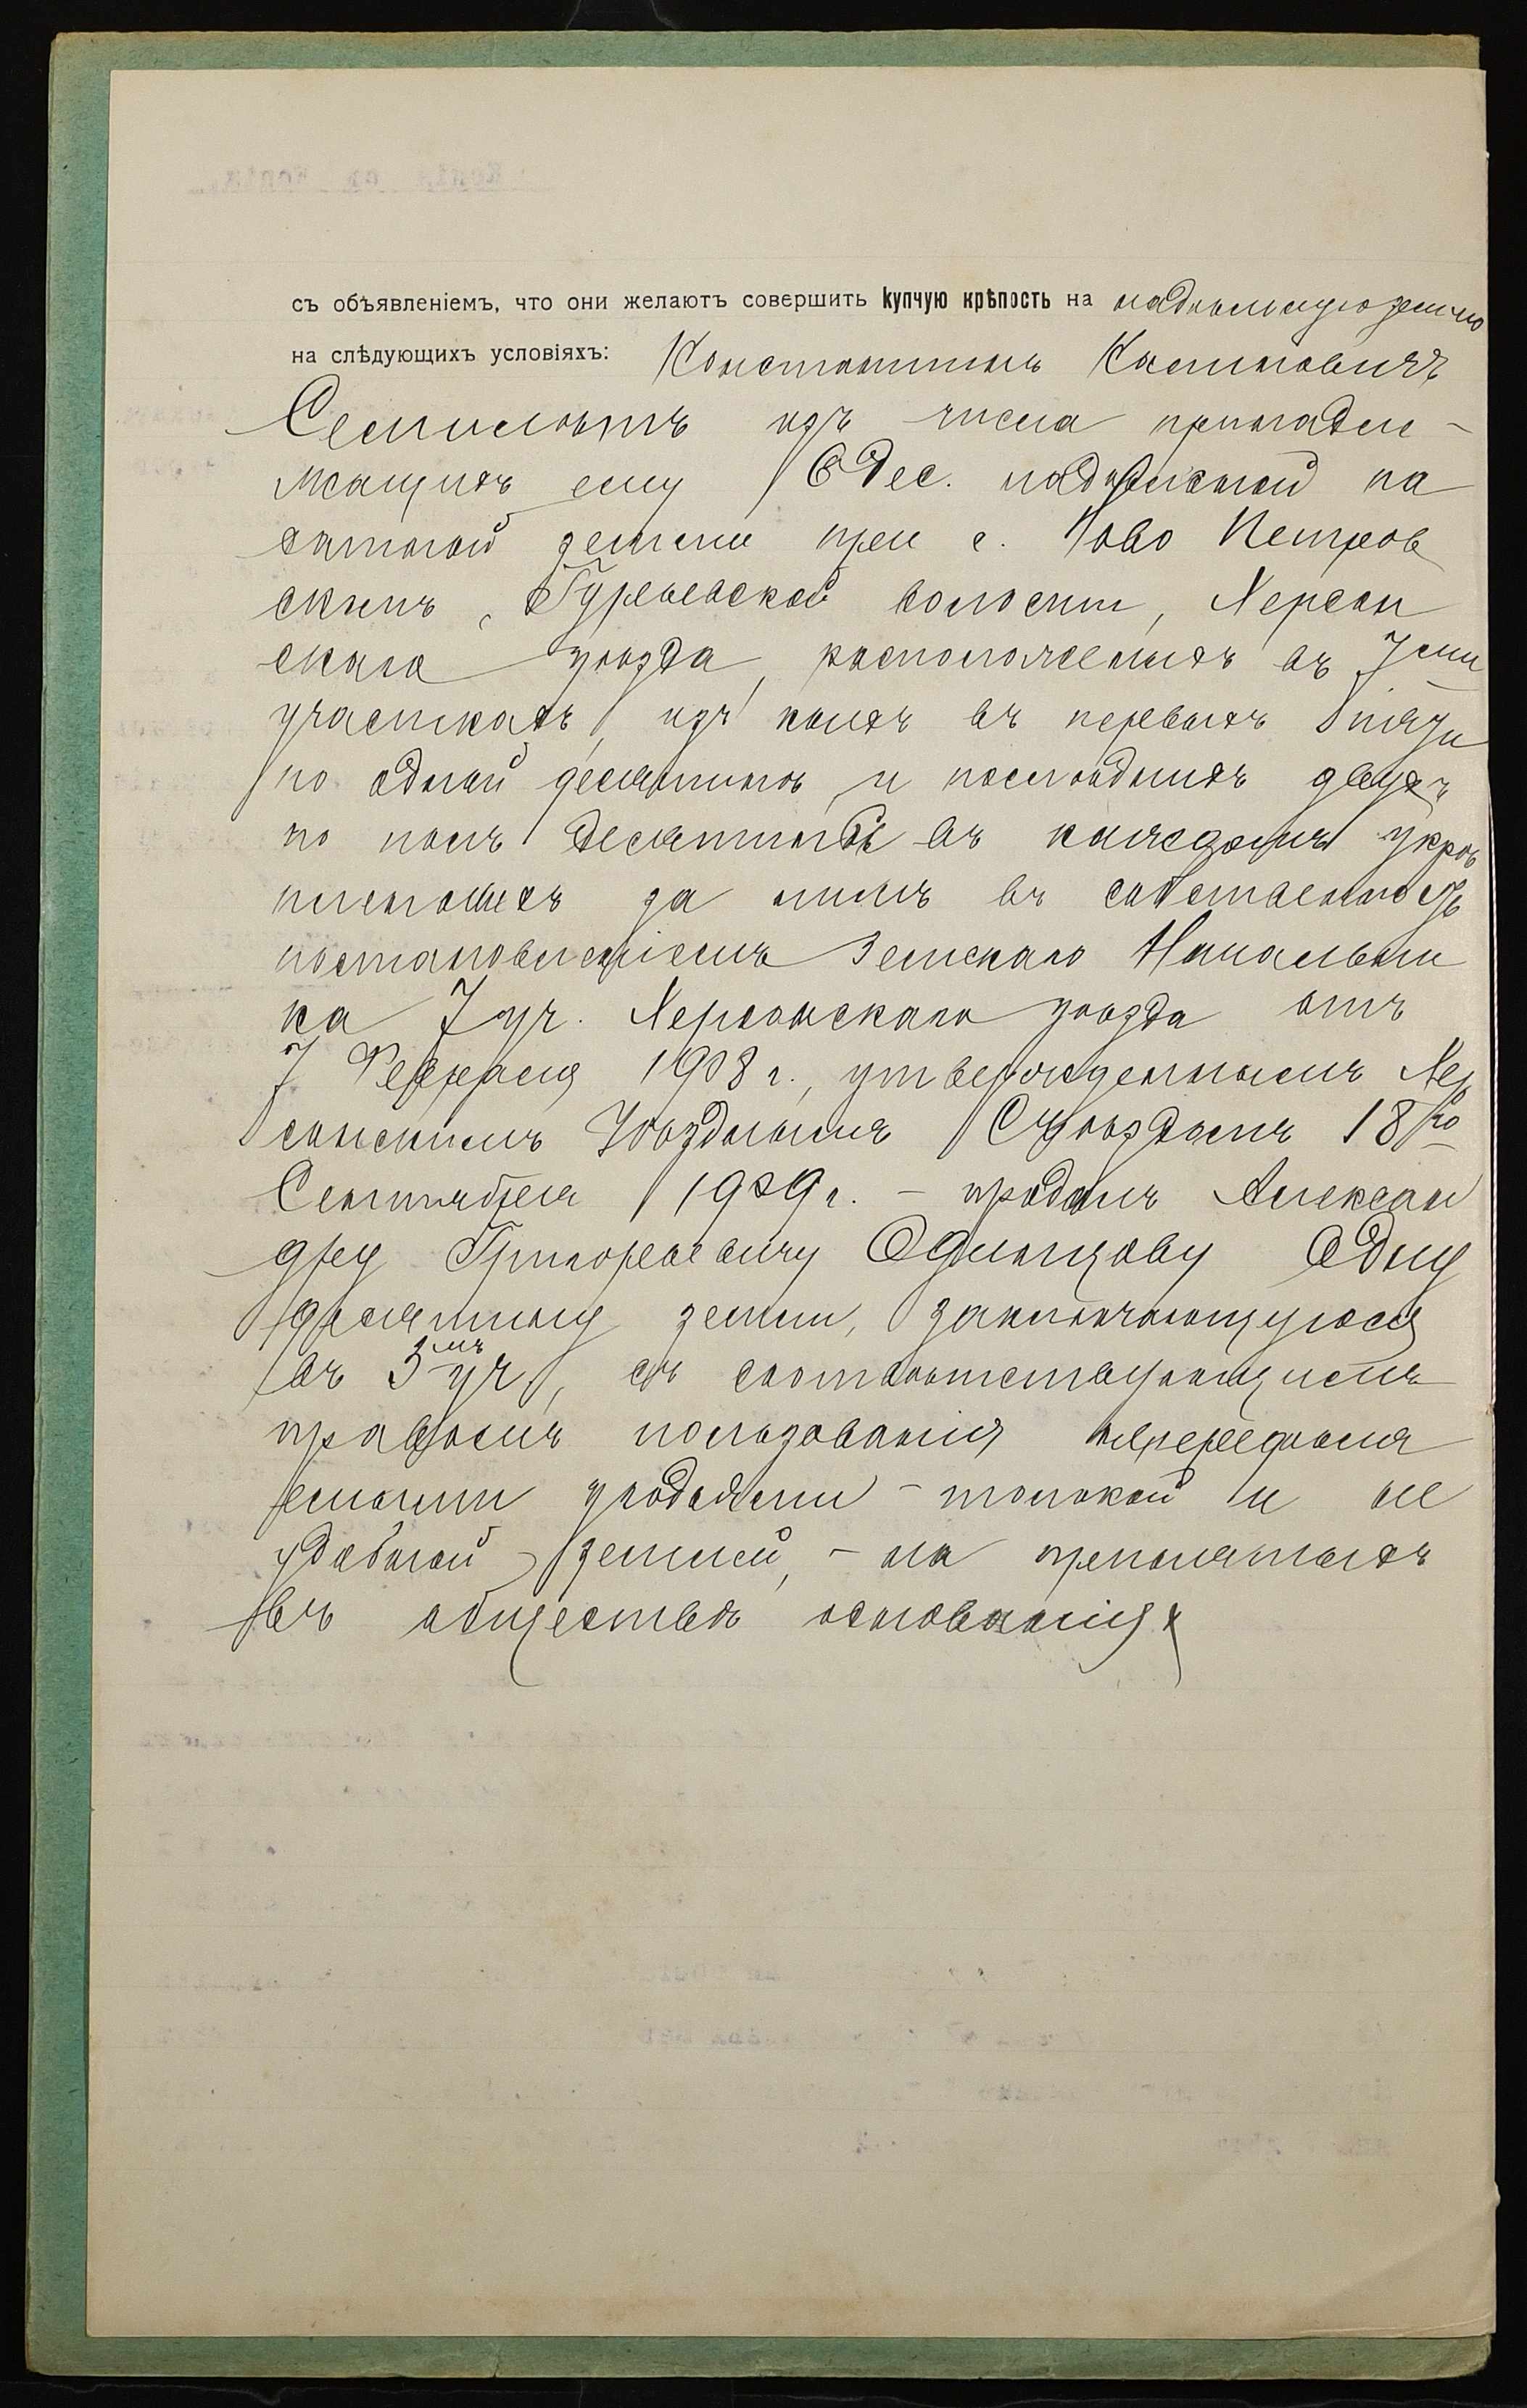 съ объявленіемъ, что они желаютъ совершить купчую крѣпость на надѣльную землю
на слѣдующихъ условіяхъ: Константинъ Касьяновичъ
Семилѣтъ изъ числа принадле-
жащихъ ему 6 дес. надѣльной па
хатной земли при с. Ново Петров
скомъ, Гурьевской волости, Херсон
скаго уѣзда, расположенныхъ въ 7ми
участкахъ, изъ коихъ въ первыхъ пяти
по одной десятинѣ и послѣднихъ двухъ
по полъ десятины въ каждомъ укрѣ
пленныхъ за нимъ въ собственность
постановленіемъ Земскаго Начальни
ка 7 уч. Херсонскаго уѣзда отъ
7 Февраля 1908 г., утвержденнымъ Хер
сонскимъ Уѣзднымъ Съѣздомъ 18го
Сентября 1909 г. – продалъ Алексан
дру Григорьевичу Одинцову Одну
десятину земли, заключающуюся
въ 3мъ уч., съ соотвѣтствующимъ
правомъ пользованія
угодьями – толокой и не
удобной землей, – на принятыхъ
въ обществѣ основаніях